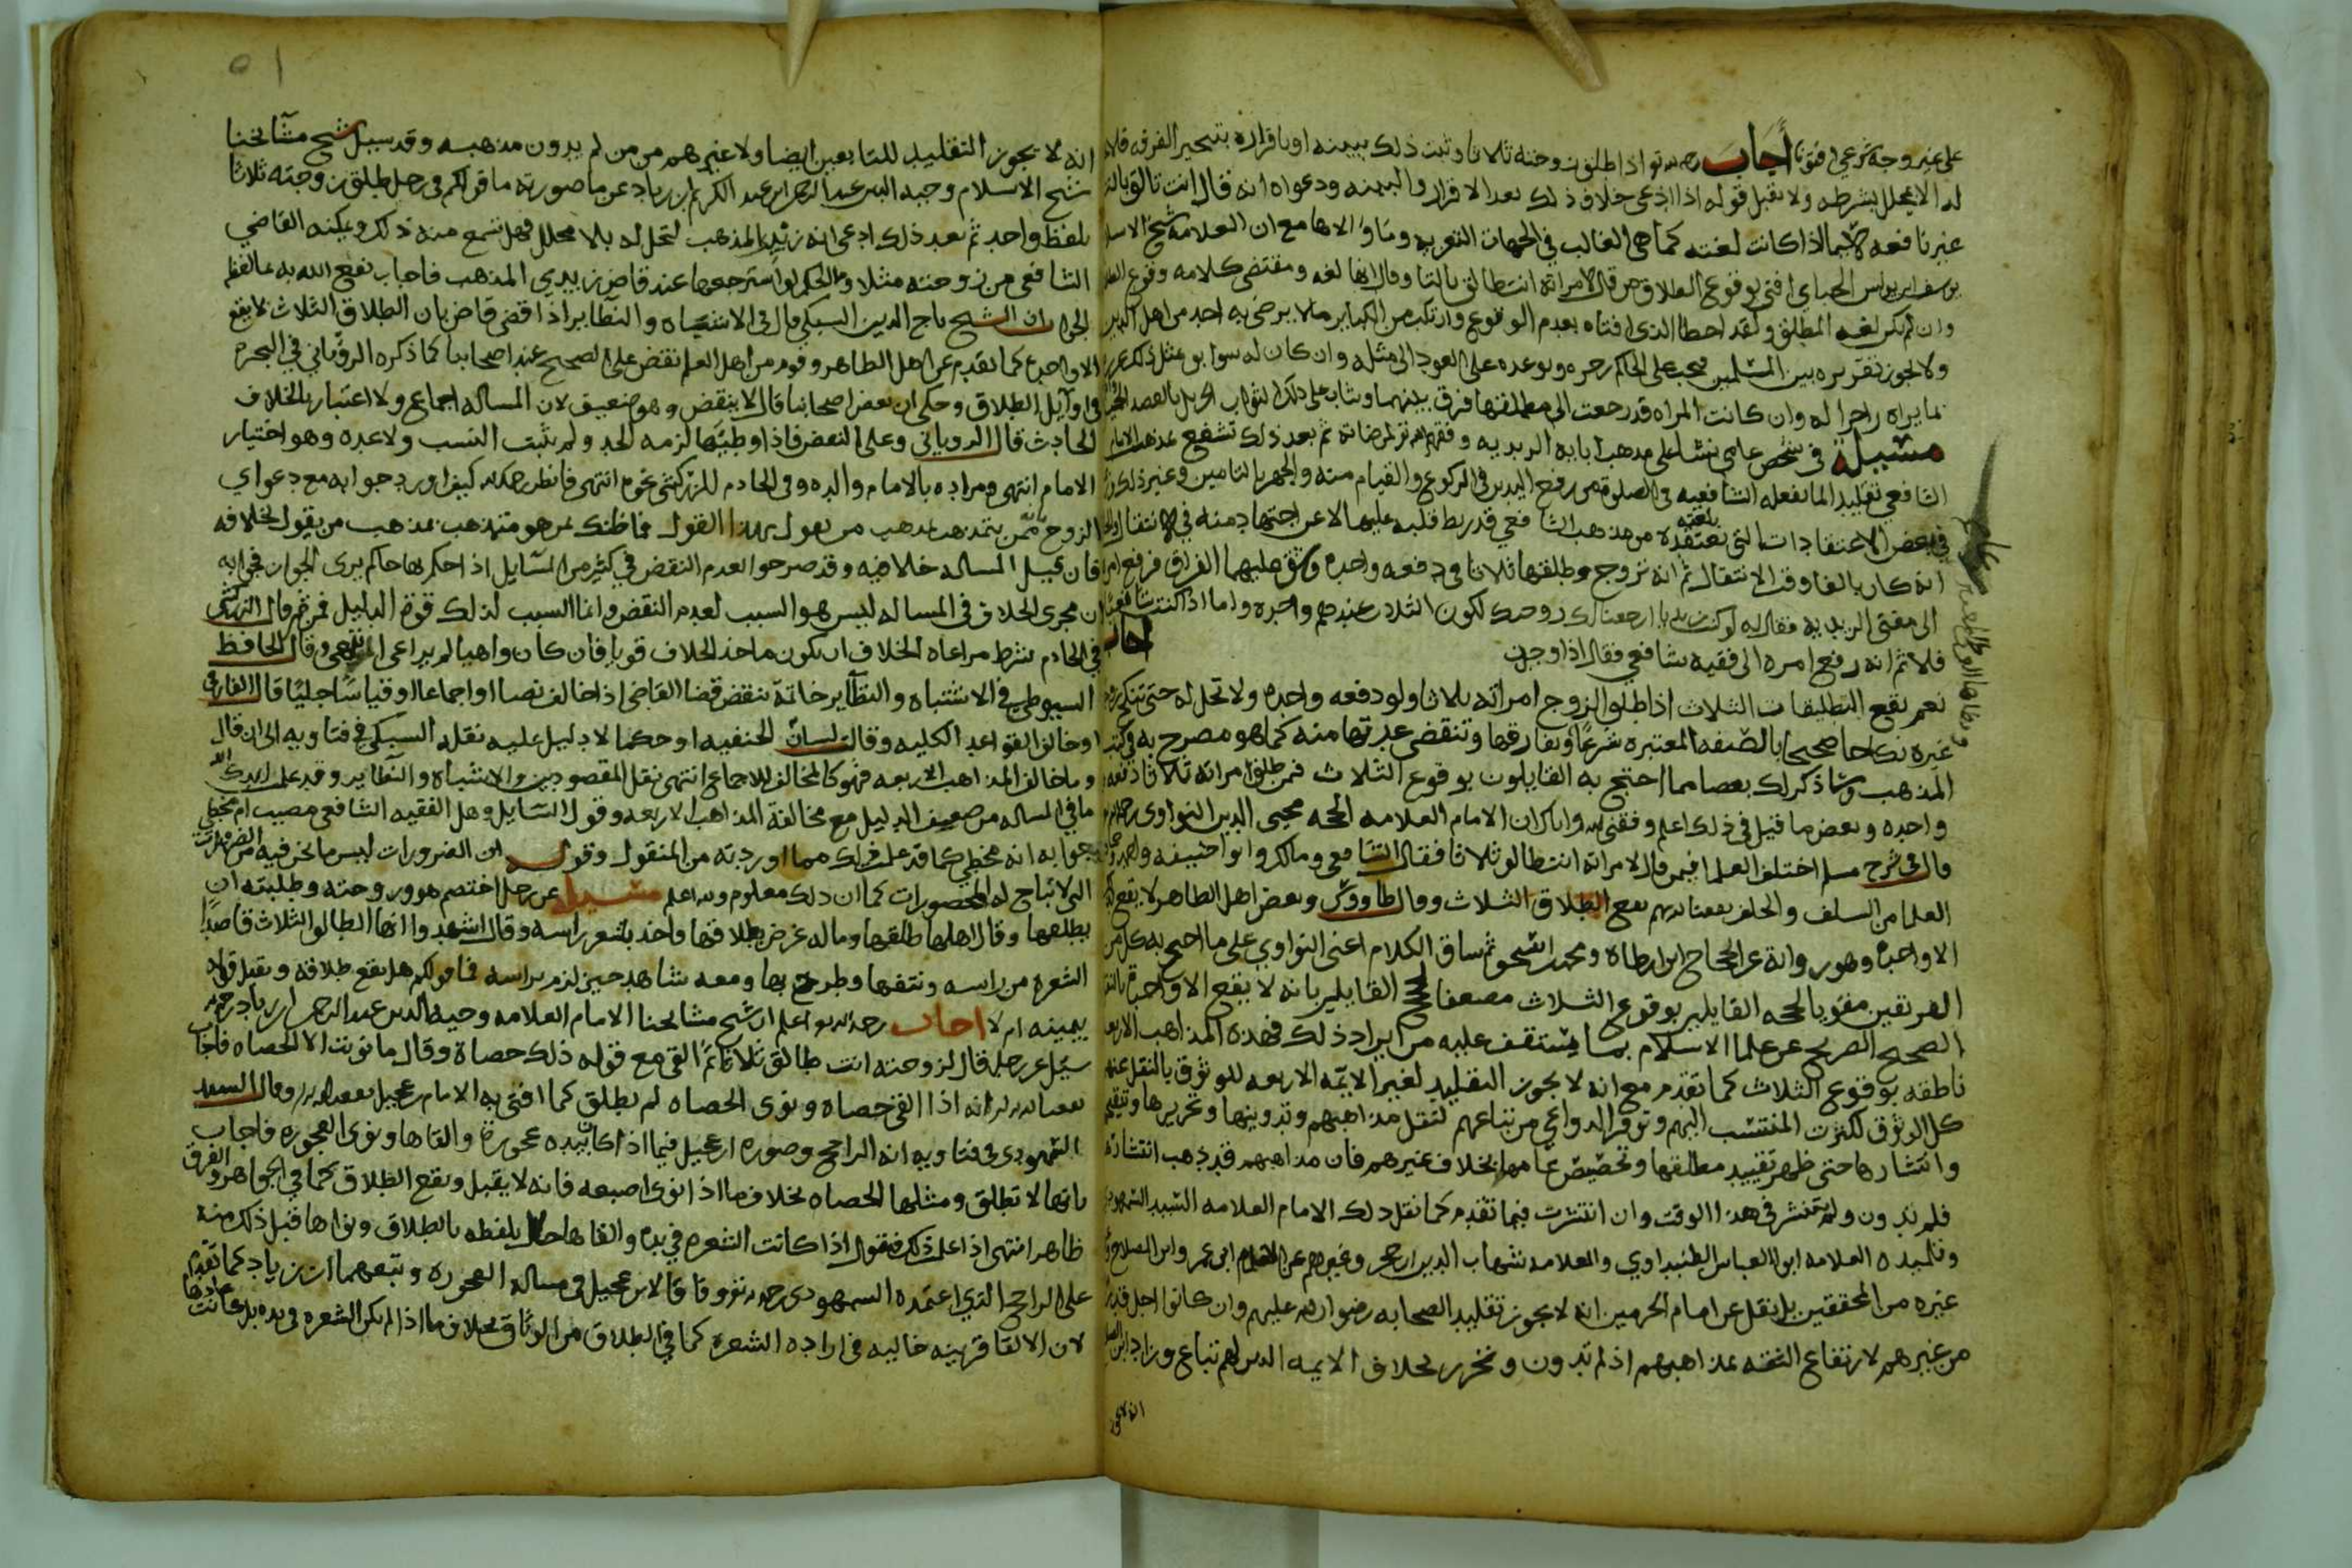 على غير وجه شرعي افتونا أجاب رحمه الله تعالى اذا طلق زوجته ثلاثا وثبت ذلك ببينه او باقراره بتنجيز الفرقه
له الا بمحلل بشرطه ولا يقبل قوله اذا ادعى خلاف ذلك بعد الاقرار والبينه ودعواه انه قال انت تالق بالتا
غير نافعه لاسيما اذا كانت لغته كما هي الغالب في الجهات التعزيه وما والاها مع ان العلامه شيخ الاسلام
يوسف ابن يونس الجباي افتى بوقوع الطلاق من قال لامراته انت طالق بالتا وقال انها لغه ومقتضى كلامه وقوع الطلاق
وان لم تكن لغه المطلق ولقد اخطا الذي افتاه بعدم الوقوع وارتكب من الكباير ما لا يرضى به احد من اهل الدين
ولا يجوز تقريره بين المسلمين فيجب على الحاكم زجره وتوعده على العود الى مثله وان كان له سوابق بمثل ذلك عزره
بما يراه زاجرا له وان كانت المراه قد رجعت الى مطلقها فرق بينهما ويثاب على ذلك الثواب الجزيل بالقصد
مسئلة في شخص عامي نشا على مذهب ابايه الزيديه وفقهم الله تعالى لمرضاته ثم بعد ذلك تشفع بمذهب الامام
الشافعي تقليدا لما يفعله الشافعيه في الصلوه من رفع اليدين في الركوع والقيام منه والجهر بالتامين وغير ذلك
في بعض الاعتقادات التي يعتقده من مذهب الشافعي قد ربط قلبه عليها لا عن اجتهاد منه في الانتقال
انه كان بالغا وقت الانتقال ثم انه تزوج وطلقها ثلاثا في دفعه واحده وشق عليهما الفراق فرفع امره
الى مفتي الزيديه فقال له لو كنت زيديا ارجعنا لك زوجتك لكون الثلاث عندهم واحده واما اذا كنت شافعيا
فلا ثم انه رفع امره الى فقيه شافعي فقال اذا وجدت
اجاب
نعم تقع التطليقات الثلاث اذا طلق الزوج امراته ثلاثا ولو دفعه واحده ولا تحل له حتى تنكح زوجا
غيره نكاحا صحيحا بالصفه المعتبره شرعا ويفارقها وتنقضي عدتها منه كما هو مصرح به في كتب
المذهب وساذكر لك بعضا مما احتج به القايلون بوقوع الثلاث فمن طلق امراته ثلاثا دفعه
واحده وبعض ما قيل في ذلك اعلم وفقني الله واياك ان الامام العلامه الحجه محيي الدين النواوي رحمه الله
قال في شرح مسلم اختلف العلما فيمن قال لامراته انت طالق ثلاثا فقال الشافعي ومالك وابو حنيفه واحمد وجماهير
العلما من السلف والخلف نفعنا الله بهم تقع الطلاق الثلاث وقال طاووس وبعض اهل الظاهر لا يقع
الا واحده وهو رواية عن الحجاج ابن ارطاة ومحمد ابن اسحق ثم ساق الكلام اعنى النواوي على ما احتج به كل من
الفريقين مقويا لحجه القايلين بوقوع الثلاث مضعفا لحجج القايلين بانه لا يقع الا واحده
الصحيح الصريح عن علما الاسلام بما ستقف عليه من ايراد ذلك فهذه المذاهب الاربعه
ناطقه بوقوع الثلاث كما تقدم مع انه لا يجوز التقليد لغير الايمه الاربعه للوثوق بالنقل عنهم
كل الوثوق لكثرت المنتسب اليهم وتوفر الدواعي من تباعهم لنقل مذاهبهم وتدوينها وتحريرها
وانتشارها حتى ظهر تقييد مطلقها وتخصيص عامها بخلاف غيرهم فان مذاهبهم قد ذهب انتشارها
فلم تدون ولم تنتشر في هذا الوقت وان انتشرت فيما تقدم كما نقل ذلك الامام العلامه السيد السمهودي
وتلميذه العلامه ابو العباس الطنبداوي والعلامه شهاب الدين ابن حجر وغيرهم عن الامام ابن عمر وابن الصلاح
غيره من المحققين بل نقل عن امام الحرمين انه لا يجوز تقليد الصحابه رضوان الله عليهم وان كانوا اجل قدرا
من غيرهم لارتفاع الثقه بمذاهبهم اذ لم تدون وتحرر بخلاف الايمه الذين لهم تباع وزاد ابن الصلاح
انه لا يجوز
انه لا يجوز التقليد للتابعين ايضا ولا غيرهم من من لم يدون مذهبه وقد سيل شيخ مشايخنا
شيخ الاسلام وجيه الدين عبد الرحمن ابن عبد الكريم بن زياد عن ما صورته ما قولكم في رجل طلق زوجته ثلاثا
بلفظ واحد ثم بعد ذلك ادعى انه زيدي المذهب لتحل له بلا محلل فهل تسمع منه ذلك ويمكنه القاضي
الشافعي من زوجته مثلا وما الحكم لو استرجعها عند قاض زيدي المذهب فاجاب نفع الله به بما لفظه
الجواب ان الشيخ تاج الدين السبكي قال في الاشباه والنظاير اذا قضى قاض بان الطلاق الثلاث لا يقع
الا واحده كما تقدم عن اهل الظاهر وقوم من اهل العلم نقض على الصحيح عند اصحابنا كما ذكره الروياني في البحر
في اوايل الطلاق وحكى ان بعض اصحابنا قال لا ينقض وهو ضعيف لان المساله اجماع ولا اعتبار بالخلاف
الحادث قال الروياني وعلى النقض فاذا وطيها لزمه الحد ولم يثبت النسب ولا عده وهو اختيار
الامام انتهى ومراده بالامام والده وفي الخادم للزركشي نحوه انتهى فانظر رحمك الله كيف اورد جوابه مع دعواي
الزوج بانه ممن يتمذهب بمذهب من يقول بهذا القول فما ظنك بمن هو متمذهب بمذهب من يقول بخلافه
فان قيل المساله خلافيه وقد صرحوا بعدم النقض في كثير من المسايل اذا حكم بها حاكم يرى الجواز فجوابه
ان مجرى الخلاف في المساله ليس هو السبب لعدم النقض وانما السبب لذلك قوة الدليل فمن ثم قال الزركشي
في الخادم شرط مراعاة الخلاف ان يكون ماخذ الخلاف قويا فان كان واهيا لم يراعى انتهى وقال الحافظ
السيوطي في الاشتباه والنظاير خاتمة ينقض قضا القاضي اذا خالف نصا او اجماعا او قياسا جليا قال القرافي
او خالف القواعد الكليه وقالت لسان الحنفيه او حكما لا دليل عليه نقله السبكي في فتاويه الى ان قال
وما خالف المذاهب الاربعه فهو كالمخالف للاجماع انتهى نقل المقصود من الاشباه والنظاير وقد علمت ايدك الله
ما في المساله من ضعف الدليل مع مخالفة المذاهب الاربعه وقول السايل وهل الفقيه الشافعي مصيب ام مخطي
جوابه انه مخطي كما قد علم ذلك مما اوردته من المنقول وقوله ان الضرورات ليس ما نحن فيه من الضرورات
التي لا تباح له المحضورات كما ان ذلك معلوم والله اعلم مسئله عن رجل اختصم هو وزوجته وطلبته ان
يطلقها وقال اهلها طلقها وماله غرض بطلاقها واخذ بشعر راسه وقال اشهدوا انها الطالق الثلاث قاصدا
الشعره من راسه ونتفها وطرح بها ومعه شاهد حين لزم براسه فما قولكم هل يقع طلاقه ويقبل قوله
بيمينه ام لا اجاب رحمه الله تعالى اعلم ان شيخ مشايخنا الامام العلامه وجيه الدين عبد الرحمن ابن زياد رحمه الله
سيل عن رجل قال لزوجته انت طالق ثلاثا ثم القى مع قوله ذلك حصاة وقال ما نويت الا الحصاه فاجاب
نفعنا الله به انه اذا القى حصاه ونوى الحصاه لم تطلق كما افتى به الامام بن عجيل نفع الله به وقال السيد
السمهودي في فتاويه انه الراجح وصوره ابن عجيل فيما اذا كان بيده عجوره والقاها ونوى العجوره فاجاب
بانها لا تطلق ومثلها الحصاه بخلاف ما اذا نوى اصبعه فانه لا يقبل ويقع الطلاق كما في الجواهر والفرق
ظاهر انتهى اذا علم ذلك فنقول اذا كانت الشعره في يده والقاها حال تلفظه بالطلاق ونواها قبل ذلك منه
على الراجح الذي اعتمده السمهودي رحمه الله تعالى وفاقا لابن عجيل في مساله العجوره وتبعهما ابن زياد كما تقدم
لان الالقا قرينه حاليه في اراده الشعره كما في الطلاق من الوثاق بخلاف ما اذا لم تكن الشعره في يده بل كانت